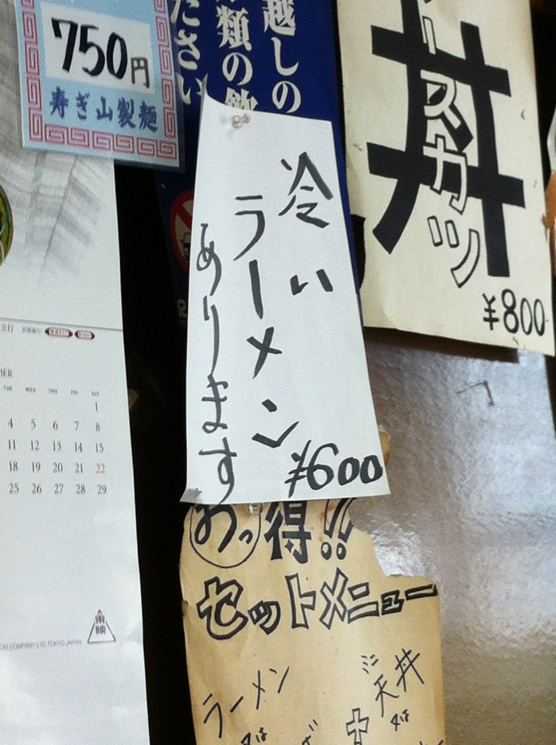 750円
寿ぎ山製麺
越しの
種類の飲
ださい
ースカツ
丼
¥800
冷い
ラーメン
あります
¥600
おっ得!!
セットメニュー
ラーメン
又は
ミニ
天丼
又は
TUE WED THU FRI SAT
1
4 5 6 7 8
11 12 13 14 15
18 19 20 21 22
25 26 27 28 29
東験
COMPANY LTD TOKYO JAPAN